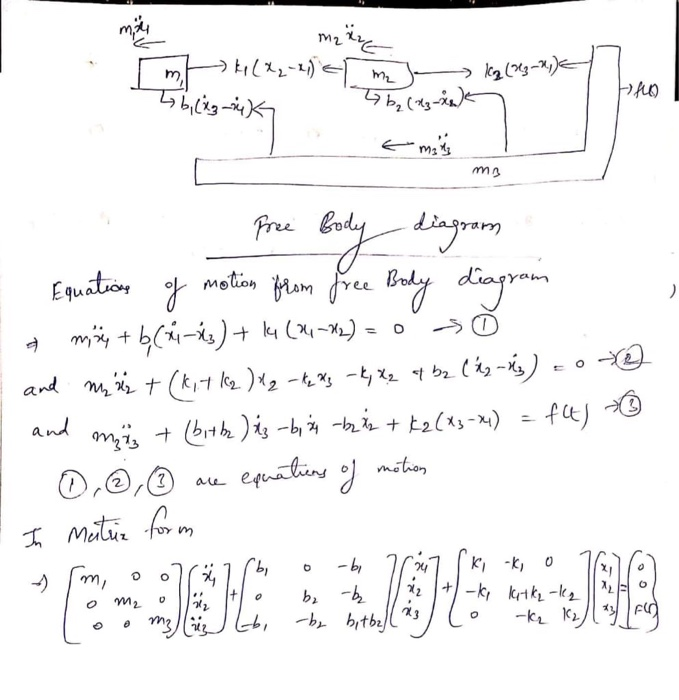 m₁ẍ₁ m₂ẍ₂
m₁ → k₁(x₂-x₁) ← m₂ → k₂(x₃-x₁) ←
↳ b₁(ẋ₃-ẋ₁) ↳ b₂(ẋ₃-ẋ₂) → f(t)
← m₃ẍ₃
m₃
Free Body diagram
Equations of motion from free Body diagram
⇒ m₁ẍ₁ + b₁(ẋ₁-ẋ₃) + k₁(x₁-x₂) = 0 → ①
and m₂ẍ₂ + (k₁+k₂)x₂ -k₂x₃ -k₁x₂ + b₂(ẋ₂-ẋ₃) = 0 → ②
and m₃ẍ₃ + (b₁+b₂)ẋ₃ -b₁ẋ₁ -b₂ẋ₂ + k₂(x₃-x₁) = f(t) → ③
①, ②, ③ are equations of motion
In Matrix form
→ [m₁ 0 0; 0 m₂ 0; 0 0 m₃] [ẍ₁; ẍ₂; ẍ₃] + [b₁ 0 -b₁; 0 b₂ -b₂; -b₁ -b₂ b₁+b₂] [ẋ₁; ẋ₂; ẋ₃] + [k₁ -k₁ 0; -k₁ k₁+k₂ -k₂; 0 -k₂ k₂] [x₁; x₂; x₃] = [0; 0; F(t)]